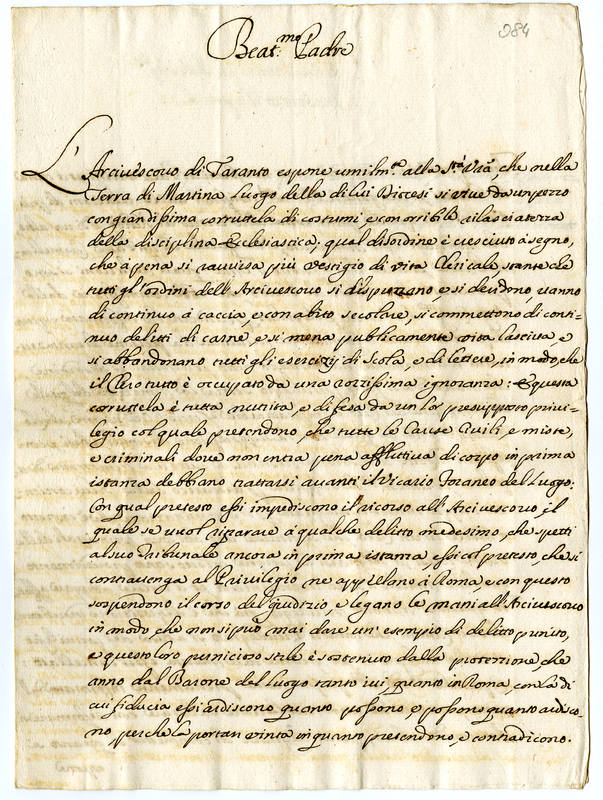 984
Beat.mo Padre
L'Arciuescouo di Taranto espone umilm.te alla S.tà V.ra, che nella
Terra di Martina luogo della di lui Diocesi si viue da un pezzo
con grandissima corrutela di costumi, e con orribile rilasciatezza
della disciplina Ecclesiastica; qual disordine è cresciuto à segno,
che à pena si rauuisa più vestigio di vita Clericale, stante che
tutti gl'ordini dell'Arciuescouo si disprezzano, e si deridono, vanno
di continuo à caccia, e con abito secolare, si commettono di conti=
nuo delitti di carne, e si mena publicamente vita lasciua, e
si abbandonano tutti gli esercizij di Scola, e di lettere, in modo, che
il Clero tutto è occupato da una rozzissima ignoranza: E questa
corruttela è tutta nutrita, e difesa da un lor presupposto priui=
legio col quale pretendono, che tutte le Cause Ciuili, e miste,
e criminali doue non entra pena afflittiua di corpo in prima
istanza debbano trattarsi auanti il Vicario Foraneo del luogo:
Con qual pretesto essi impediscono il ricorso all'Arciuescouo, il
quale se vuol riparare à qualche delitto medesimo, che spetti
al suo Tribunale ancora in prima istanza, essi col pretesto, che si
contrauenga al Priuilegio ne appellano à Roma, e con questo
sospendono il corso del giudizio, e legano le mani all'Arciuescouo
in modo, che non si può mai dare un'esempio di delitto punito,
e questo loro pernicioso stile è sostenuto dalla protezzione, che
anno dal Barone del luogo tanto iui, quanto in Roma, con la di
cui fiducia essi ardiscono quanto possono, e possono quanto ardisco=
no, perche la portan vinta in quanto pretendono, e contradicono.